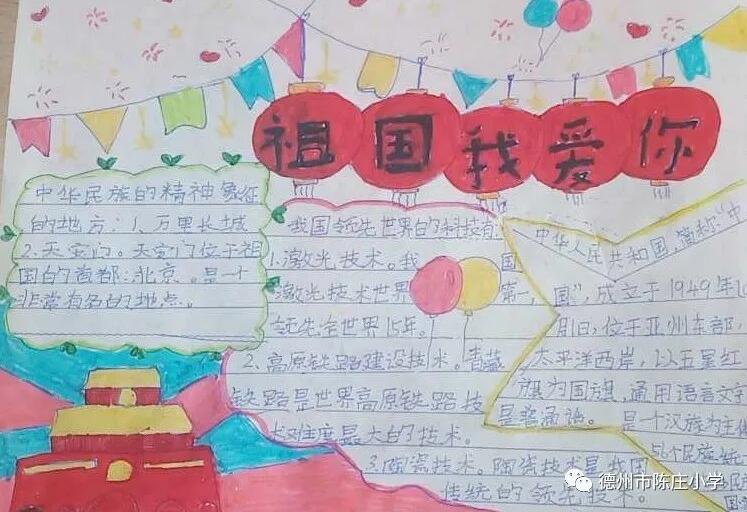 祖国我爱你
中华民族的精神象征
的地方：1、万里长城
2、天安门。天安门位于祖
国的首都：北京。是一个
非常有名的地点。
我国领先世界的科技有
1.激光技术。我国
激光技术世界第一，
领先全世界15年。
2、高原铁路建设技术。青藏
铁路是世界高原铁路技
术难度最大的技术。
3.陶瓷技术。陶瓷技术是我国
传统的领先技术。
中华人民共和国，简称“中
国”，成立于1949年10
月1日，位于亚州东部，
太平洋西岸，以五星红
旗为国旗，通用语言文字
是普通话。是一个汉族为主体
56个民族统一
德州市陈庄小学